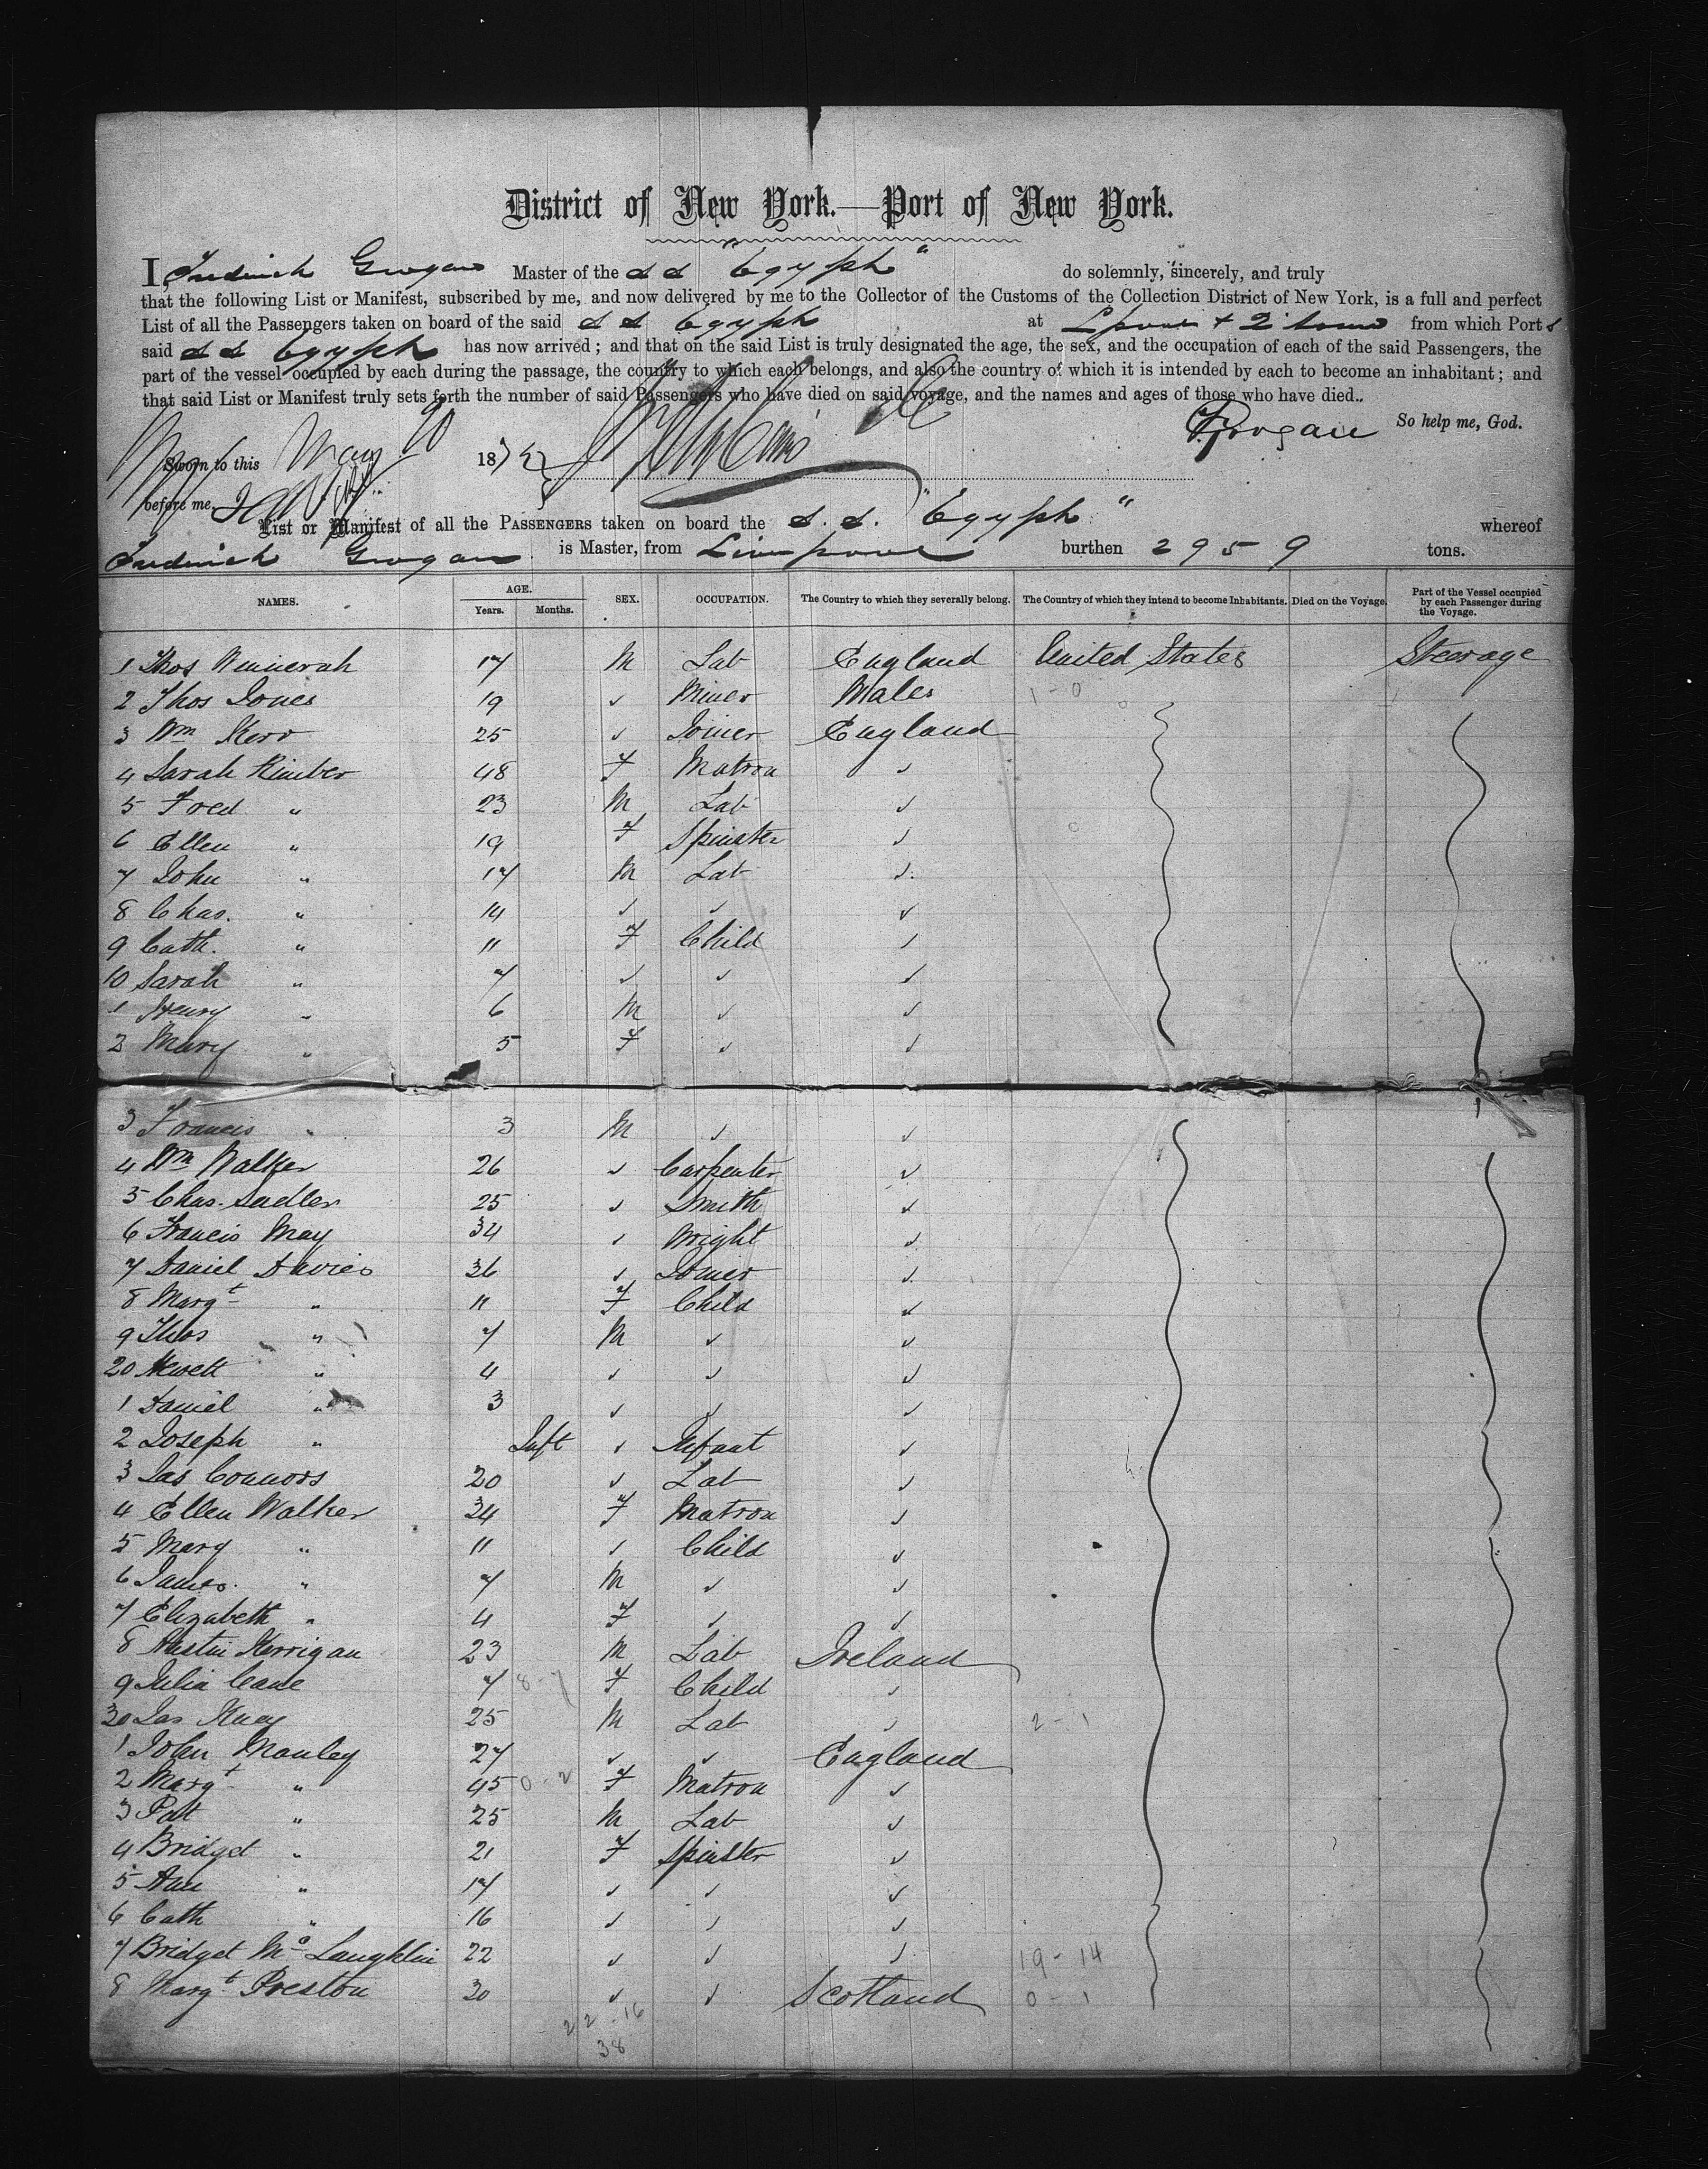 District of New York.—Port of New York.
I, Frederick Grogan Master of the S S "Egypt" do solemnly, sincerely, and truly
that the following List or Manifest, subscribed by me, and now delivered by me to the Collector of the Customs of the Collection District of New York, is a full and perfect
List of all the Passengers taken on board of the said S S Egypt at Lpool + Q'town from which Ports
said S S Egypt has now arrived; and that on the said List is truly designated the age, the sex, and the occupation of each of the said Passengers, the
part of the vessel occupied by each during the passage, the country to which each belongs, and also the country of which it is intended by each to become an inhabitant; and
that said List or Manifest truly sets forth the number of said Passengers who have died on said voyage, and the names and ages of those who have died.
F Grogan So help me, God.
Sworn to this May 20 187
before me,
List or Manifest of all the PASSENGERS taken on board the S.S. "Egypt" whereof
Frederick Grogan is Master, from Liverpool burthen 2959 tons.
NAMES. AGE. Years. Months. SEX. OCCUPATION. The Country to which they severally belong. The Country of which they intend to become Inhabitants. Died on the Voyage. Part of the Vessel occupied by each Passenger during the Voyage.
1 Thos 17 M Lab England United States Steerage
2 Thos Jones 19 ✓ Miner Wales 1-0
3 Wm Kerr 25 ✓ Joiner England
4 Sarah Kimber 48 F Matron ✓
5 Fred " 23 M Lab ✓
6 Ellen " 19 F Spinster ✓
7 John " 17 M Lab ✓
8 Chas. " 14 ✓ ✓ ✓
9 Cath. " 11 F Child ✓
10 Sarah " 7 ✓ ✓ ✓
1 Henry " 6 M ✓ ✓
2 Mary " 5 F ✓ ✓
3 Francis " 3 M ✓ ✓
4 Wm Walker 26 ✓ Carpenter ✓
5 Chas. Sadler 25 ✓ Smith ✓
6 Francis May 34 ✓ Wright ✓
7 Daniel Davies 36 ✓ Joiner ✓
8 Margt " 11 F Child ✓
9 Thos " 7 M ✓ ✓
20 Hewett " 4 ✓ ✓ ✓
1 Daniel " 3 ✓ ✓ ✓
2 Joseph " Inft ✓ Infant ✓
3 Jas Connors 20 ✓ Lab ✓
4 Ellen Walker 34 F Matron ✓
5 Mary " 11 ✓ Child ✓
6 James. " 7 M ✓ ✓
7 Elizabeth " 4 F ✓ ✓
8 Austin Kerrigan 23 M Lab Ireland
9 Julia Cane 7 8-7 F Child ✓
30 Jas 25 M Lab ✓ 2-1
1 John Manley 27 ✓ ✓ England
2 Margt " 45 0-2 F Matron ✓
3 Pat " 25 M Lab ✓
4 Bridget " 21 F Spinster ✓
5 Ann " 17 ✓ ✓ ✓
6 Cath " 16 ✓ ✓ ✓
7 Bridget Mc Laughlin 22 ✓ ✓ ✓ 19-14
8 Margt Preston 20 ✓ ✓ Scotland 0-1
22-16
38